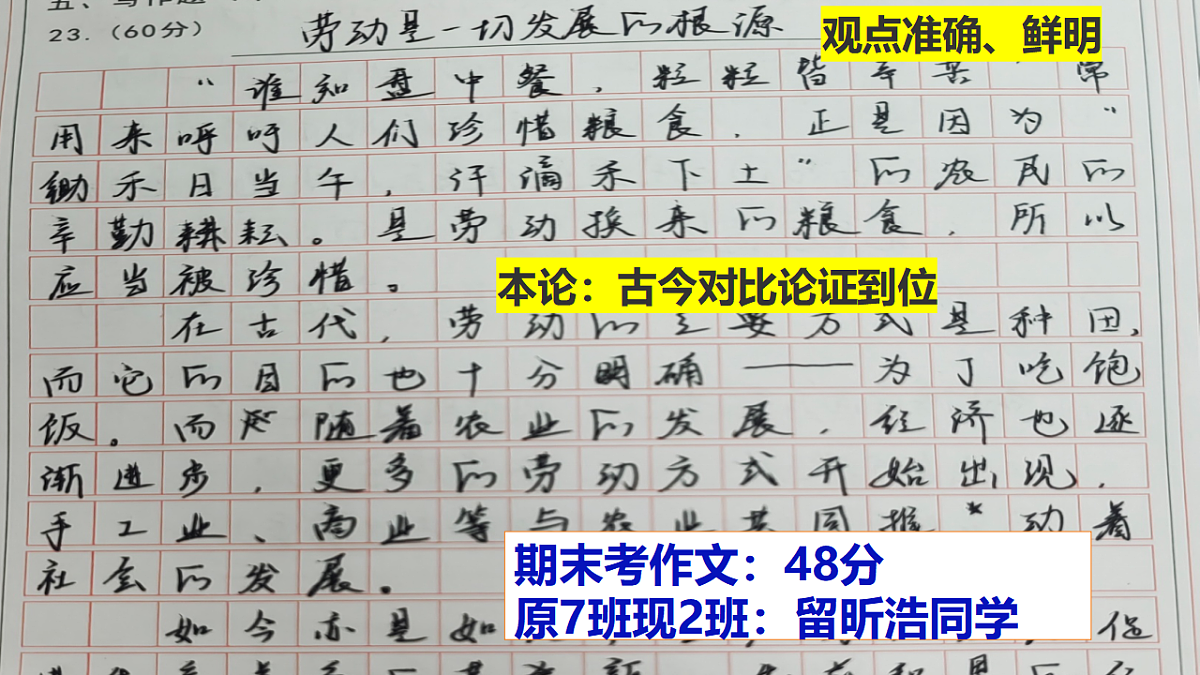 23.(60分)
劳动是一切发展的根源
观点准确、鲜明
“谁知盘中餐,粒粒皆辛苦”常
用来呼吁人们珍惜粮食.正是因为“
锄禾日当午,汗滴禾下土”的农民的
辛勤耕耘。是劳动换来的粮食,所以
应当被珍惜。
本论:古今对比论证到位
在古代,劳动的主要方式是种田,
而它的目的也十分明确——为了吃饱
饭。而随着农业的发展,经济也逐
渐进步,更多的劳动方式开始出现,
手工业、商业等与农业共同推动着
社会的发展。
期末考作文:48分
原7班现2班:留昕浩同学
如今亦是如
促